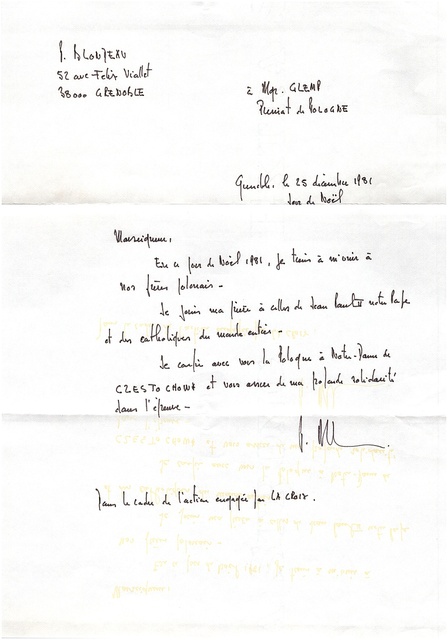 P. BLONDEAU
52 ave Félix Viallet
38000 GRENOBLE
à Mgr. GLEMP
Primat de POLOGNE
Grenoble, le 25 décembre 1981
Jour de Noël
Monseigneur,
En ce jour de Noël 1981, je tiens à m'unir à
nos frères polonais -
Je joins ma prière à celles de Jean Paul II notre Pape
et des catholiques du monde entier -
Je confie avec vous la Pologne à Notre-Dame de
CZESTOCHOWA et vous assure de ma profonde solidarité
dans l'épreuve -
Dans le cadre de l'action engagée par LA CROIX.